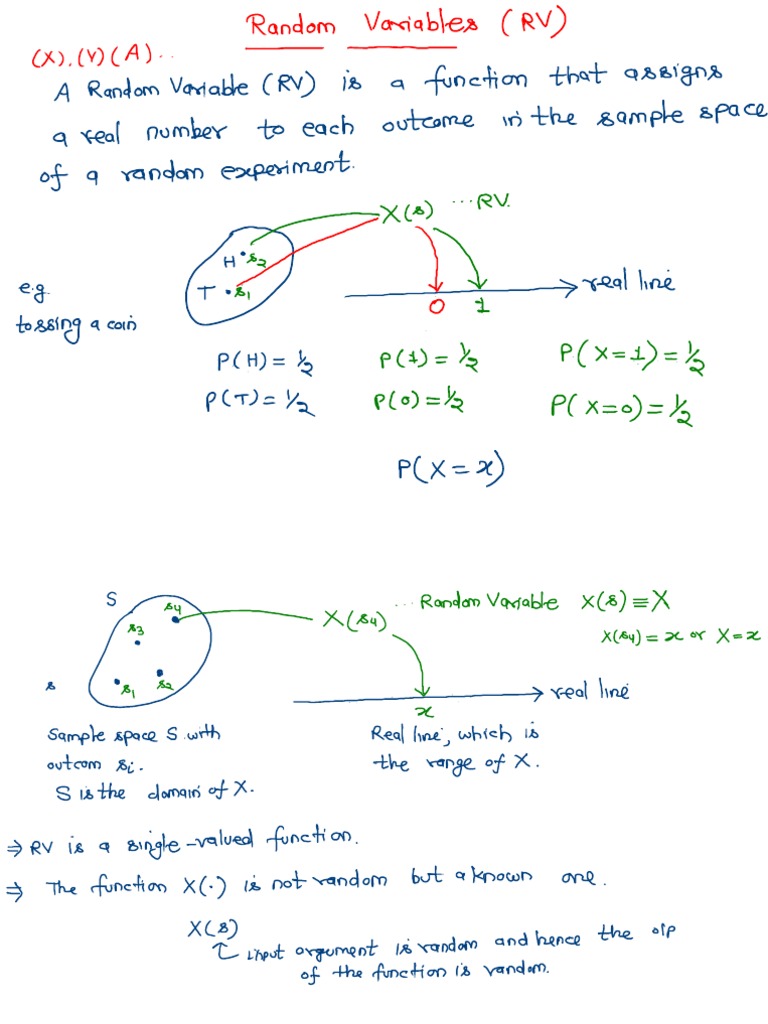 Random Variables (RV)
(X), (Y) (A)...
A Random Variable (RV) is a function that assigns
a real number to each outcome in the sample space
of a random experiment.
X(s) ...RV.
H s2
T s1
real line
0 1
e.g.
tossing a coin
P(H) = 1/2 P(1) = 1/2 P(X=1) = 1/2
P(T) = 1/2 P(0) = 1/2 P(X=0) = 1/2
P(X=x)
S
s4
s3
s1 s2
s
X(s4)
... Random Variable X(s) ≡ X
X(s4) = x or X = x
real line
x
Sample space S with
outcom si.
S is the domain of X.
Real line, which is
the range of X.
⇒ RV is a single-valued function.
⇒ The function X(·) is not random but a known one.
X(s)
input argument is random and hence the o/p
of the function is random.